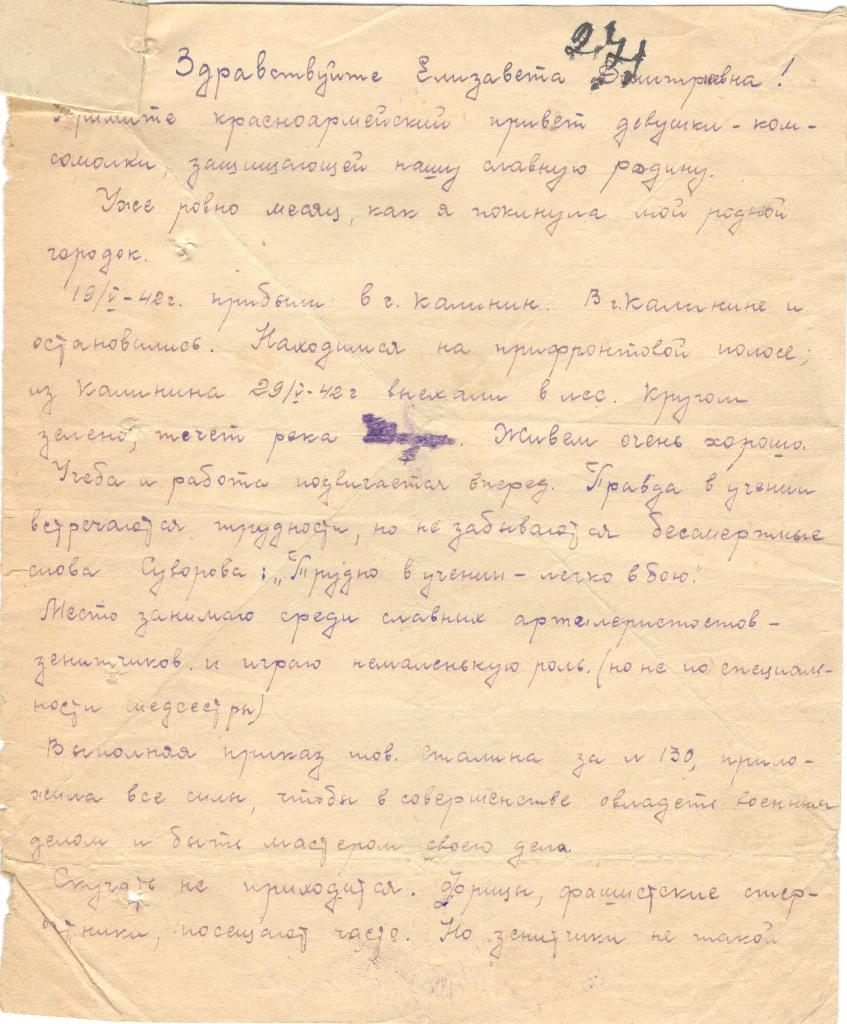 271
Здравствуйте Елизавета Дмитриевна!
Примите красноармейский привет девушки-ком-
сомолки, защищающей нашу славную родину.
Уже ровно месяц, как я покинула мой родной
городок.
19/V-42г. прибыли в г. Калинин. В г. Калинине и
остановились. Находимся на прифронтовой полосе;
из Калинина 29/V-42г выехали в лес. Кругом
зелено, течет река . Живем очень хорошо.
Учеба и работа подвигается вперед. Правда в учении
встречаются трудности, но не забываются бессмертные
слова Суворова: „Трудно в учении – легко в бою."
Место занимаю среди славных артилеристов-
зенитчиков. и играю немаленькую роль. (но не по специаль-
ности медсестры)
Выполняя приказ тов. Сталина за N 130, прило-
жила все силы, чтобы в совершенстве овладеть военным
делом и быть мастером своего дела.
Скучать не приходится. Фрицы, фашистские стер-
вятники, посещают часто. Но зенитчики не такой